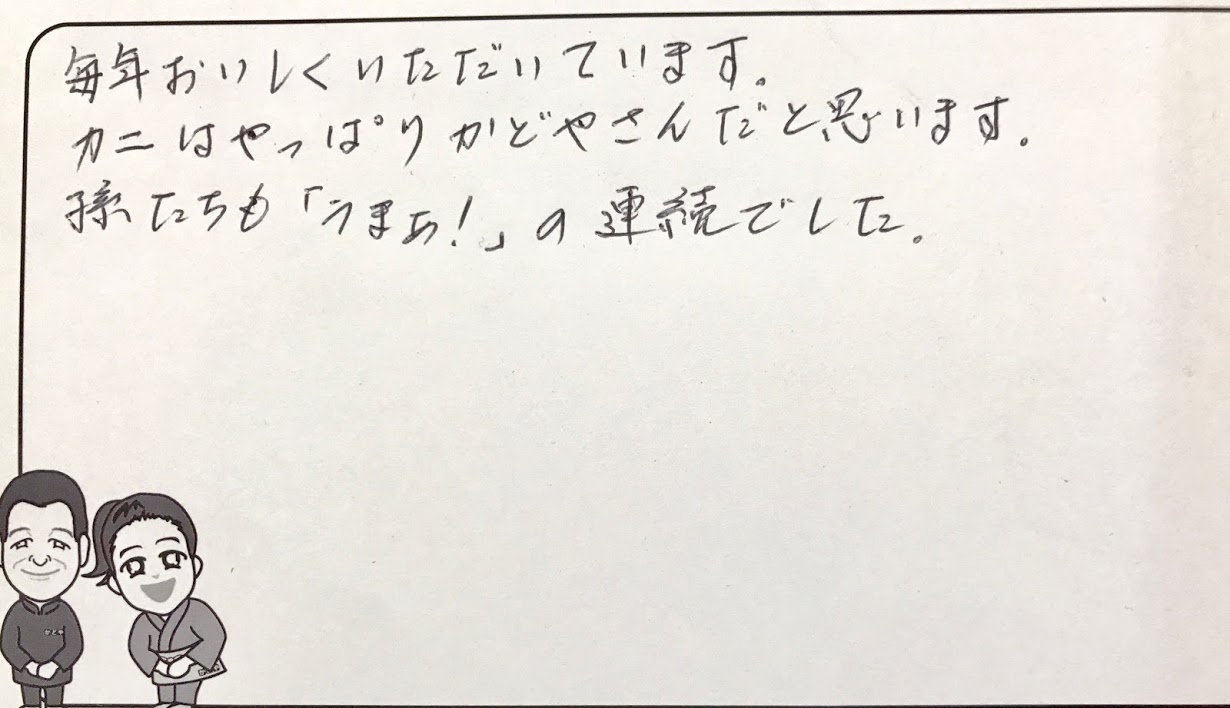 毎年おいしくいただいています。
カニはやっぱりかどやさんだと思います。
孫たちも「うまぁ！」の連続でした。
かどや